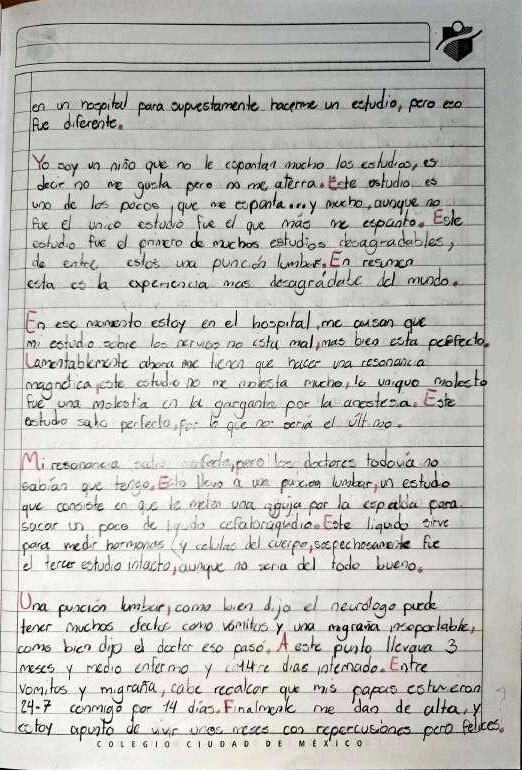 en un hospital para supuestamente hacerme un estudio, pero eso
fue diferente.
Yo soy un niño que no le espantan mucho los estudios, es
decir no me gusta pero no me aterra. Este estudio es
uno de los pocos, que me espanta... y mucho, aunque no
fue el unico estudio fue el que más me espanto. Este
estudio fue el primero de muchos estudios desagradables,
de entre estos una punción lumbar. En resumen
esta es la experiencia mas desagradable del mundo.
En ese momento estoy en el hospital, me avisan que
mi estudio sobre los nervios no esta mal, mas bien esta perfecto.
Lamentablemente ahora me tienen que hacer una resonancia
magnetica, este estudio no me molesta mucho, lo uniquo molesto
fue una molestia en la garganta por la anestesia. Este
estudio salio perfecto, por lo que no seria el último.
Mi resonancia salio perfecta, pero los doctores todavia no
sabian que tengo. Esto llevo a una puncion lumbar, un estudio
que consiste en que te meten una aguja por la espalda para
sacar un poco de liquido cefaloraquidio. Este liquido sirve
para medir hormonas y celulas del cuerpo, sospechosamente fue
el tercer estudio intacto, aunque no seria del todo bueno.
Una punción lumbar, como bien dijo el neurólogo puede
tener muchos efectos como vómitos y una migraña insoportable,
como bien dijo el doctor eso pasó. A este punto llevava 3
meses y medio enfermo y catorce dias internado. Entre
vomitos y migraña, cabe recalcar que mis papas estuvieron
24-7 conmigo por 14 días. Finalmente me dan de alta, y
estoy apunto de vivir unos meses con repercusiones pero felices.
COLEGIO CIUDAD DE MÉXICO